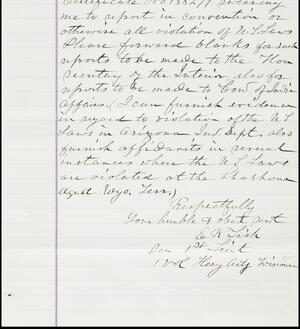 Certificate No 1332/7 swearing
me to report in convention or
otherwise all violation of U.S. Laws
Please forward blanks for such
reports to be made to the Hon
Secretary of the Interior also for
reports to be made to Com of Indian
affairs. (I can furnish evidence
in regard to violation of the U S
Laws in Arizona Ind. Dept. also
furnish affidavits in several
instances where the U S Laws
are violated at the Shoshone
Agcet Wyo. Terr,)
Respectfully
Your humble & obet servt
E R Fisk
1st Lieut
1 Vol Heavy Arty